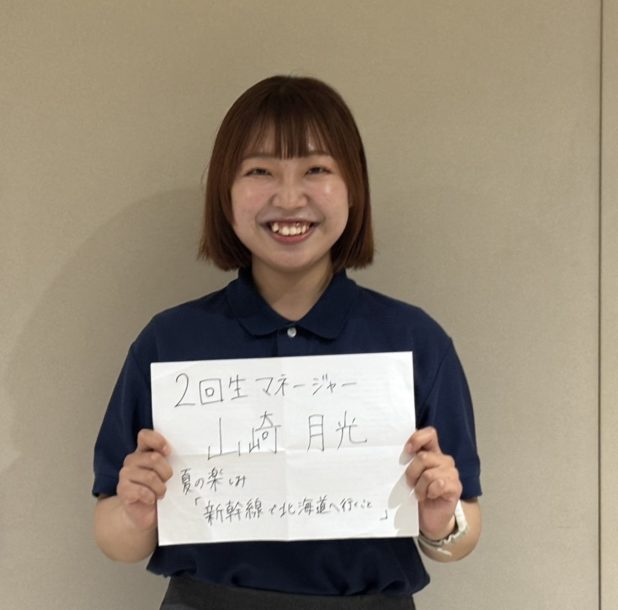 2回生マネージャー
山崎 月光
夏の楽しみ
「新幹線で北海道へ行くこと」